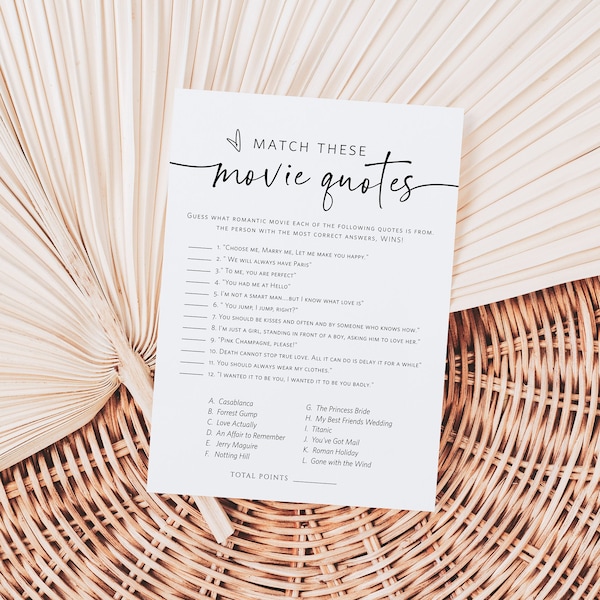 MATCH THESE
movie quotes
Guess what romantic movie each of the following quotes is from.
the person with the most correct answers, WINS!
1. "Choose me, Marry me, Let me make you happy."
2. " We will always have Paris"
3. " To me, you are perfect"
4. "You had me at Hello"
5. I'm not a smart man...but I know what love is"
6. " You jump, I jump, right?"
7. You should be kisses and often and by someone who knows how."
8. I'm just a girl, standing in front of a boy, asking him to love her."
9. "Pink Champagne, please!"
10. Death cannot stop true love. All it can do is delay it for a while"
11. You should always wear my clothes."
12. "I wanted it to be you, I wanted it to be you badly."
A. Casablanca
B. Forrest Gump
C. Love Actually
D. An Affair to Remember
E. Jerry Maguire
F. Notting Hill
G. The Princess Bride
H. My Best Friends Wedding
I. Titanic
J. You've Got Mail
K. Roman Holiday
L. Gone with the Wind
TOTAL POINTS